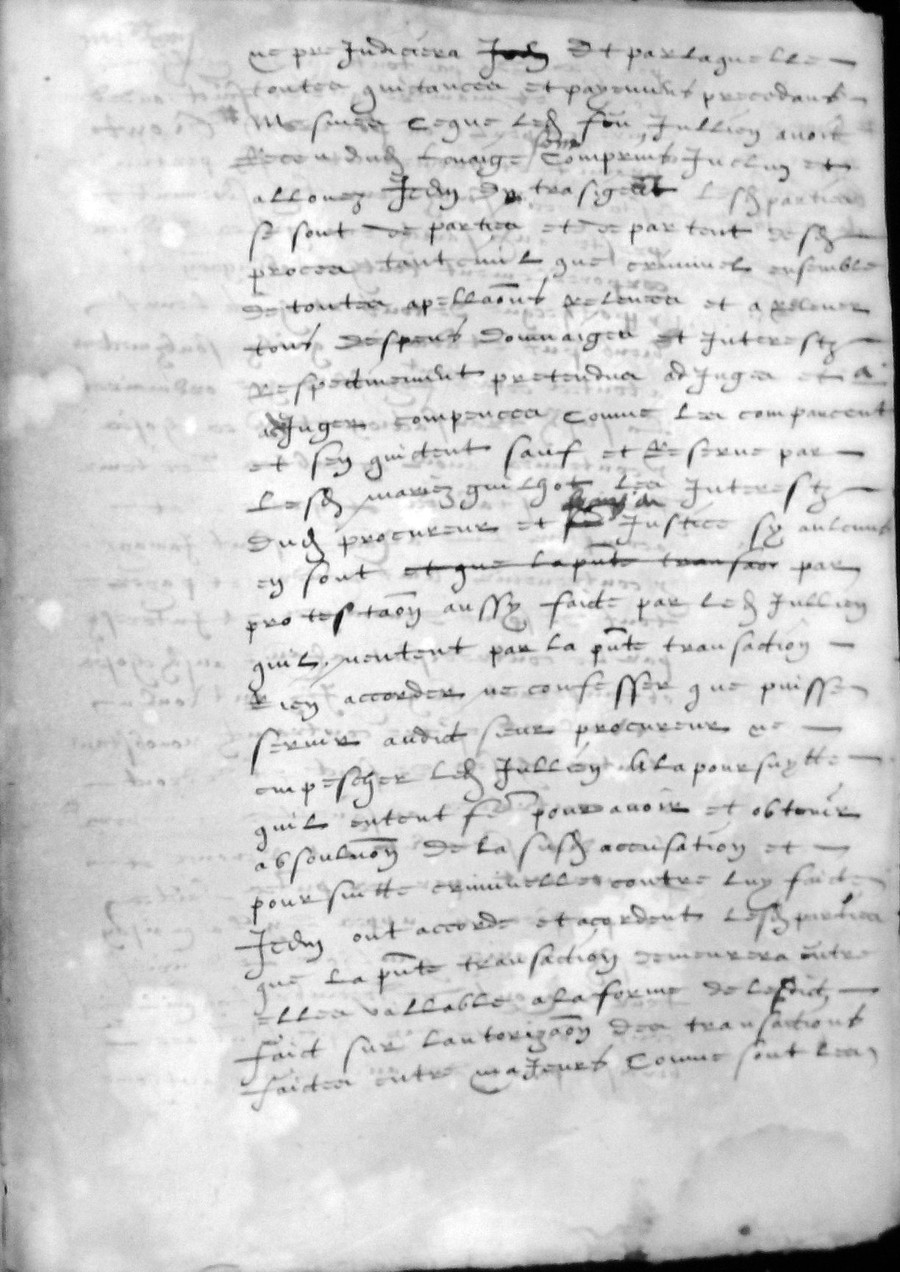 ne preJudiciera Et par laquelle
toutes quictances et payemens precedans
mesmes ce que led feu Jullien avoit
Receu dud comprins Inclus et
allouez Jtem trasigent lesd parties
se sont de parties et de partent desd
proces tant civil que criminel ensemble
de toutes apellaons relevees et a relever
tous despens domaiges et Interestz
Respectivement pretendus adJuges et a
adJuger compences comme les compancent
et sen quictent sauf et Reserve par
lesd mariez guilhot les Interestz
dud procureur et Justice sy aulcuns
en sont et que la pnte transaon par
protestaon aussy faicte par led Jullien
quil nentent par la pnte transaction
Rien accorder ne confesser que puisse
servir audict sieur procureur ne
empescher led Jullien a la poursuytte
quil entent fe pour avoir et obtenir
absoluon de la susd accusation et
poursuitte criminelle contre luy faicte
Jtem ont accorde et acordent lesd parties
que la pnte transaction demeurera entre
elles vallable a la forme de lesdict
faict sur lautorizaon des transactions
faictes entre maJeurs comme sont les